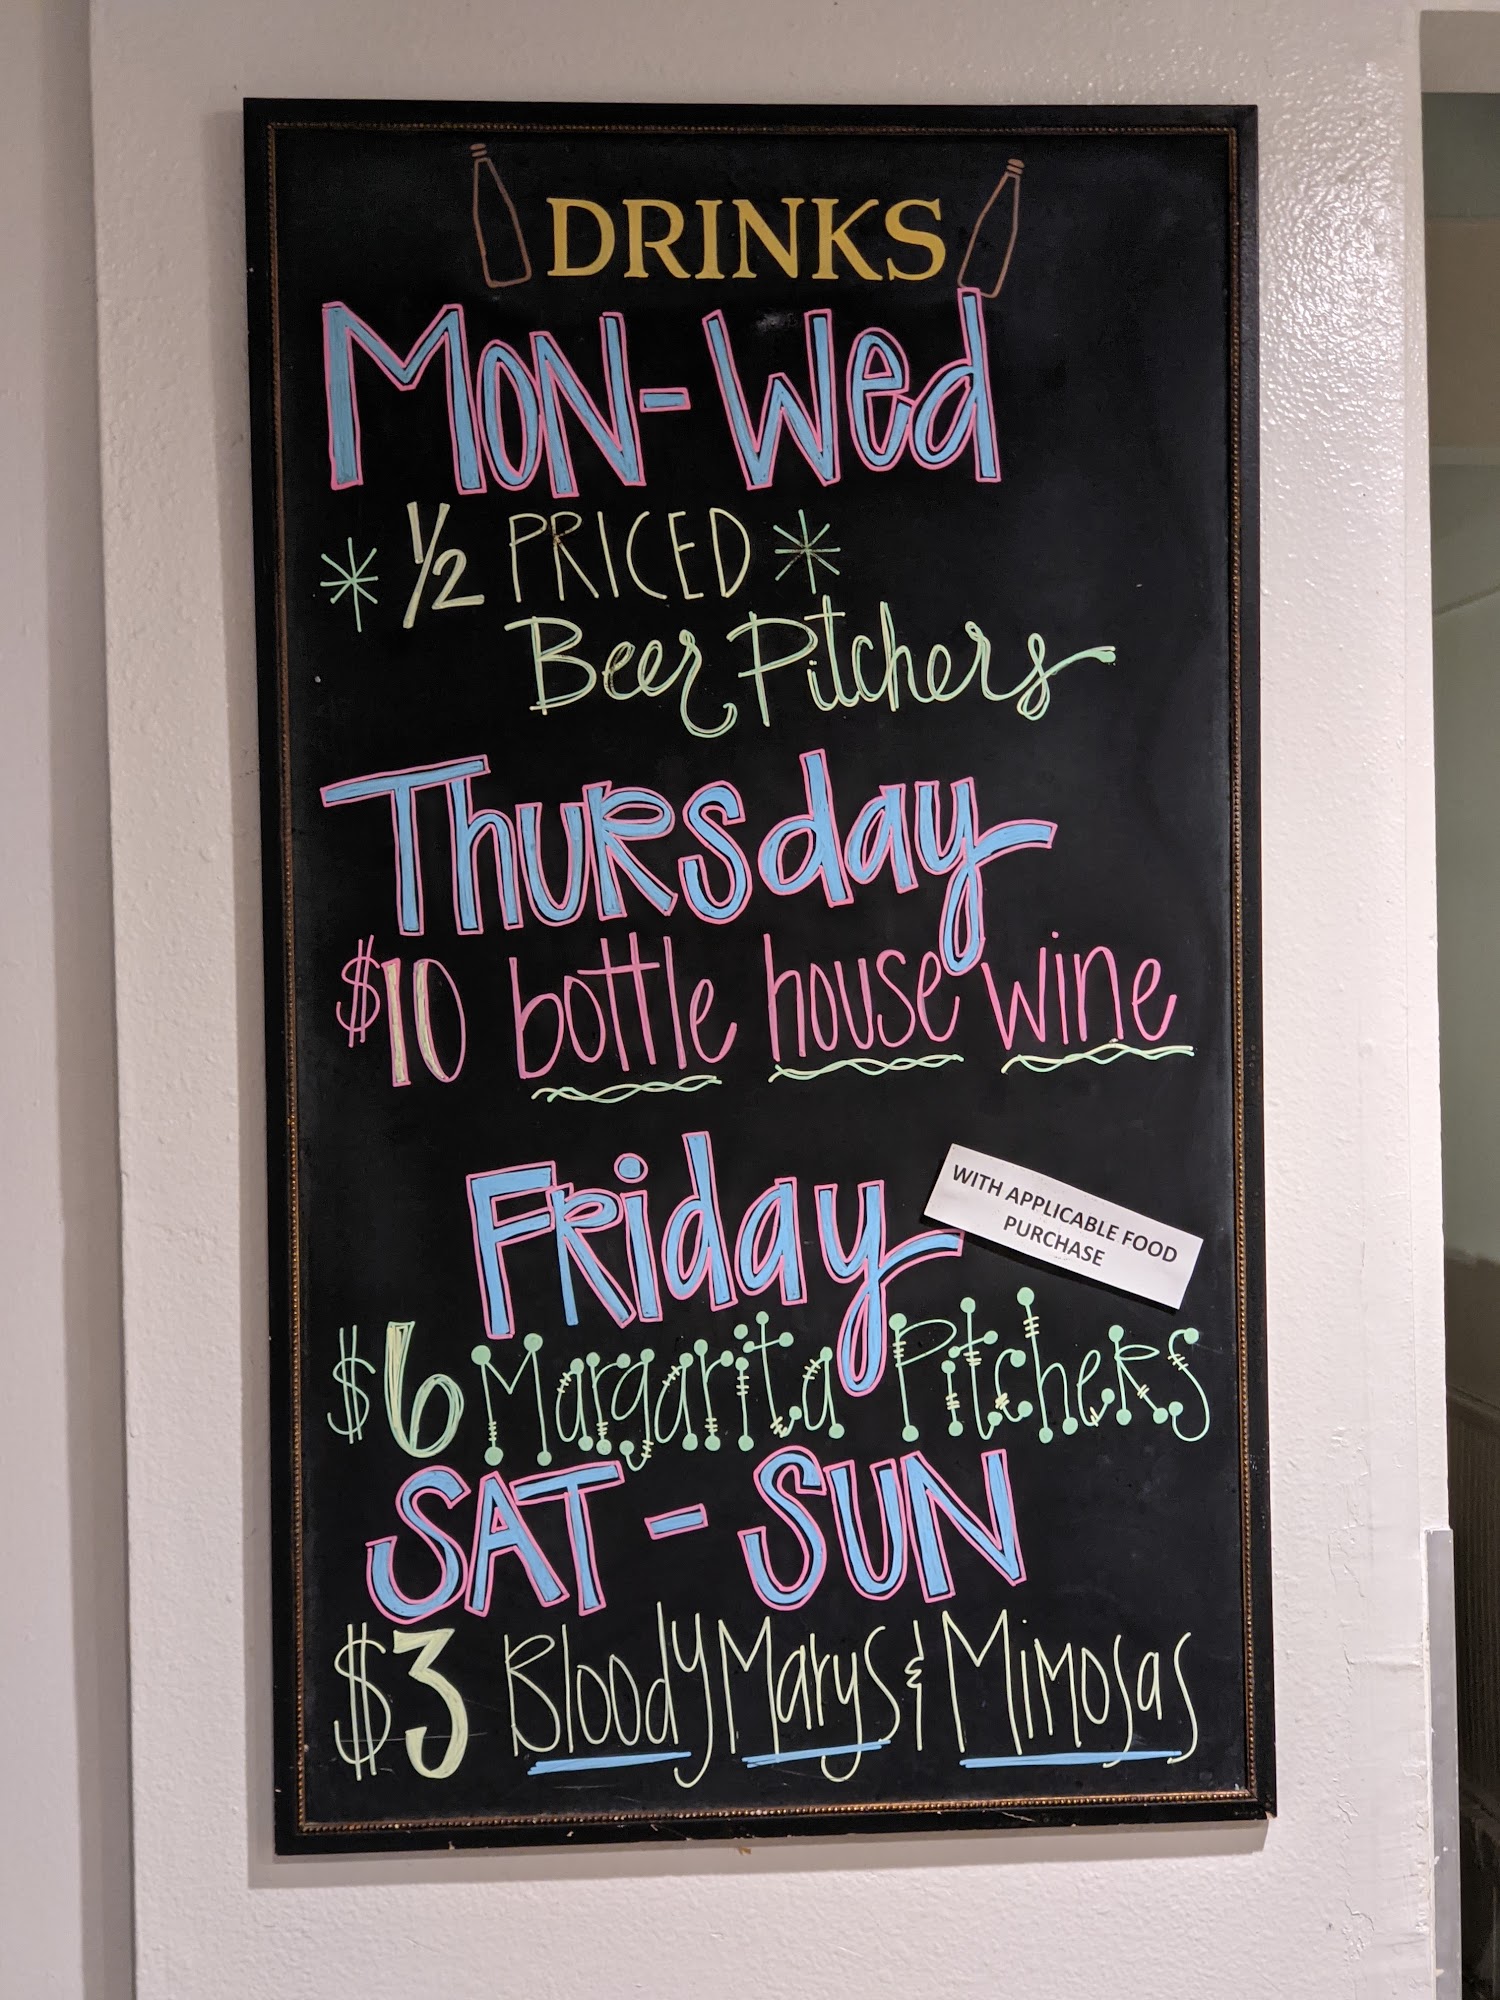 DRINKS
Mon-Wed
* 1/2 PRICED *
Beer Pitchers
Thursday
$10 bottle house wine
Friday
WITH APPLICABLE FOOD
PURCHASE
$6 Margarita Pitchers
SAT - SUN
$3 Bloody Marys & Mimosas